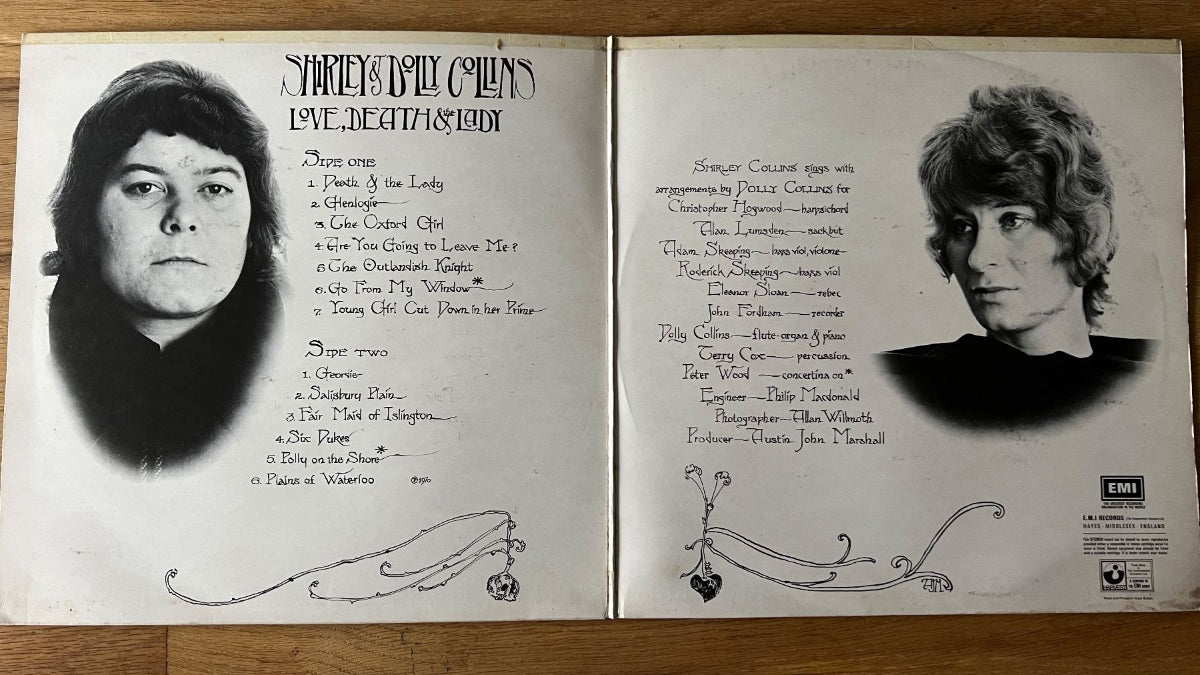 SHIRLEY & DOLLY COLLINS
LOVE, DEATH & the LADY
SIDE ONE
1. Death & the Lady
2. Glenlogie
3. The Oxford Girl
4. Are You Going to Leave Me?
5 The Outlandish Knight
6. Go From My Window*
7. Young Girl Cut Down in her Prime
SIDE TWO
1. Georgie
2. Salisbury Plain
3. Fair Maid of Islington
4. Six Dukes
5. Polly on the Shore*
6. Plains of Waterloo ℗1970
SHIRLEY COLLINS sings with
arrangements by DOLLY COLLINS for
Christopher Hogwood — harpsichord
Alan Lumsden — sackbut
Adam Skeaping — bass viol, violone
Roderick Skeaping — bass viol
Eleanor Sloan — rebec
John Fordham — recorder
Dolly Collins — flute-organ & piano
Terry Cox — percussion
Peter Wood — concertina on*
Engineer — Philip Macdonald
Photographer — Allan Willmoth
Producer — Austin John Marshall
AJM
EMI
THE GREATEST RECORDING
ORGANISATION IN THE WORLD
E.M.I RECORDS
HAYES · MIDDLESEX · ENGLAND
HARVEST